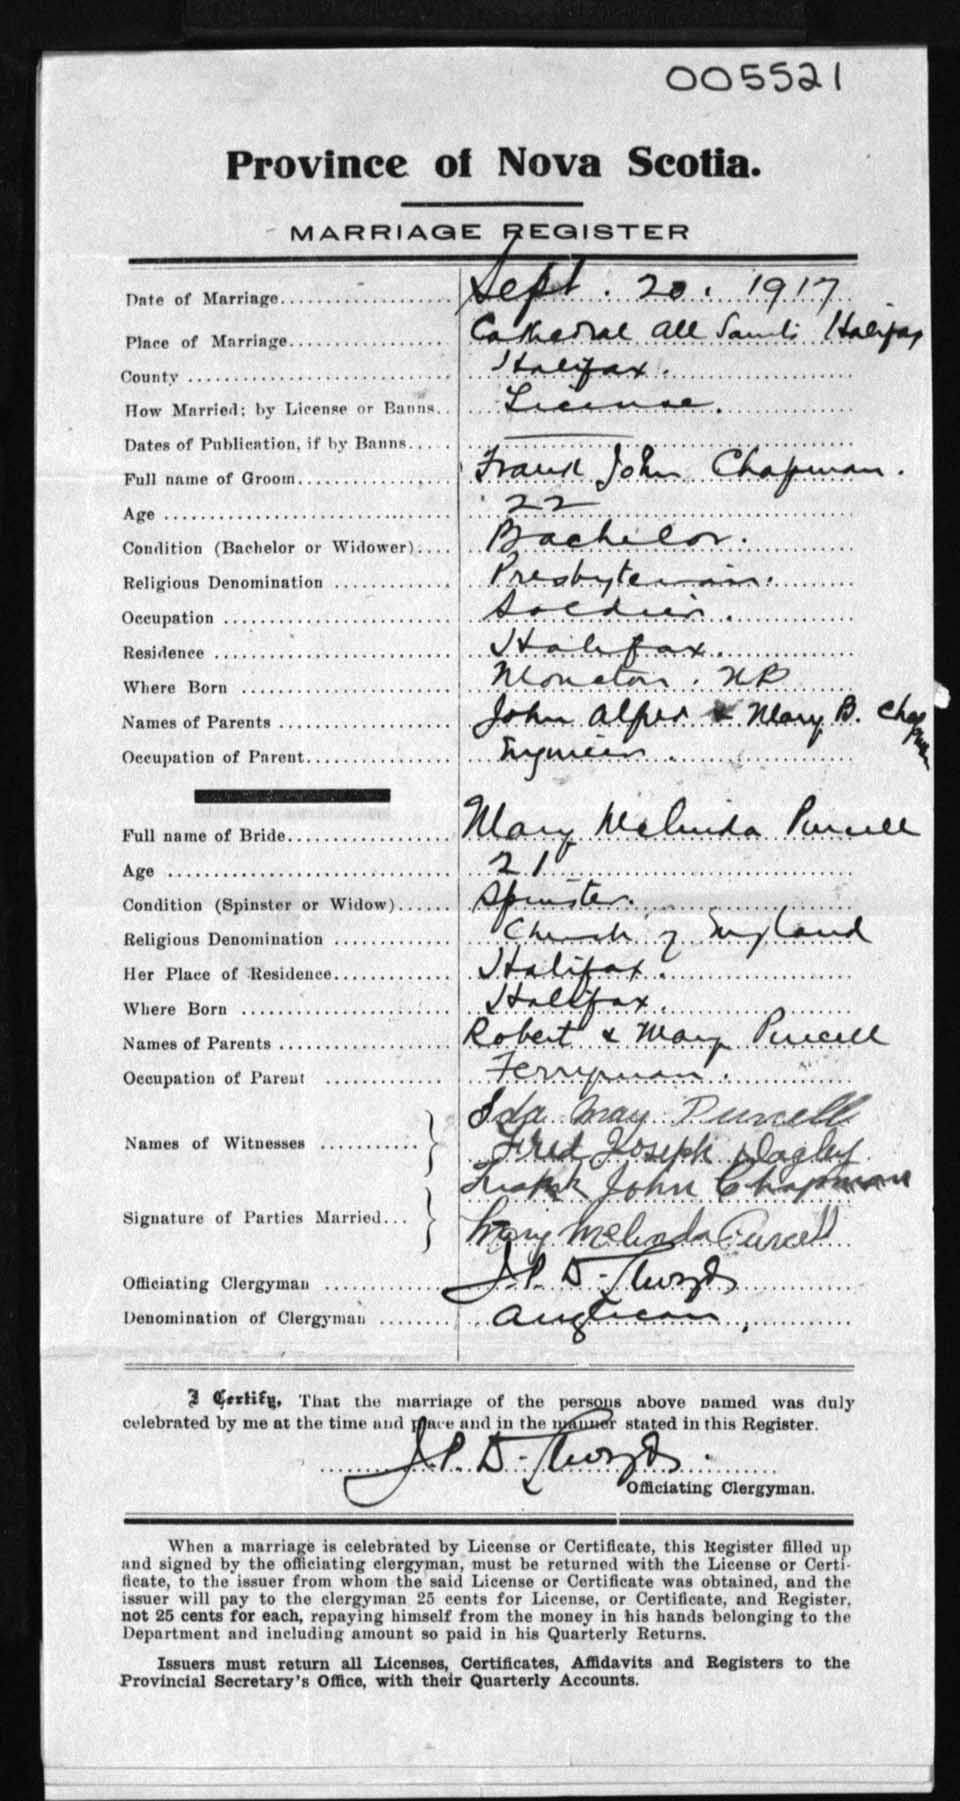 005521
Province of Nova Scotia.
MARRIAGE REGISTER
Date of Marriage Sept. 20. 1917
Place of Marriage Cathedral All Saints Halifax
County Halifax.
How Married; by License or Banns License.
Dates of Publication, if by Banns
Full name of Groom Frank John Chapman.
Age 22
Condition (Bachelor or Widower) Bachelor.
Religious Denomination Presbyterian.
Occupation Soldier.
Residence Halifax.
Where Born Moncton. NB
Names of Parents John Alfred & Mary B. Chapman
Occupation of Parent Engineer.
Full name of Bride Mary Melinda Purcell
Age 21
Condition (Spinster or Widow) Spinster.
Religious Denomination Church of England
Her Place of Residence Halifax.
Where Born Halifax.
Names of Parents Robert & Mary Purcell
Occupation of Parent Ferryman.
Ida May Purcell
Names of Witnesses Fred Joseph Dagley
Frank John Chapman
Signature of Parties Married
Mary Melinda Purcell
Officiating Clergyman J.P. D.
Denomination of Clergyman Anglican
I Certify, That the marriage of the persons above named was duly
celebrated by me at the time and place and in the manner stated in this Register.
J.P. D.
Officiating Clergyman.
When a marriage is celebrated by License or Certificate, this Register filled up
and signed by the officiating clergyman, must be returned with the License or Certi-
ficate, to the issuer from whom the said License or Certificate was obtained, and the
issuer will pay to the clergyman 25 cents for License, or Certificate, and Register,
not 25 cents for each, repaying himself from the money in his hands belonging to the
Department and including amount so paid in his Quarterly Returns.
Issuers must return all Licenses, Certificates, Affidavits and Registers to the
Provincial Secretary's Office, with their Quarterly Accounts.